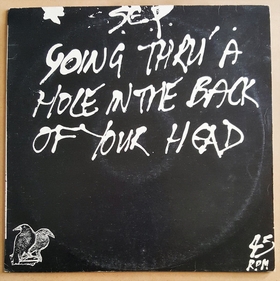 S.E.P.
GOING THRU' A
HOLE IN THE BACK
OF YOUR HEAD
45
RPM